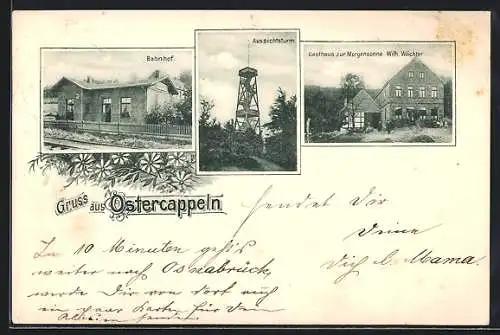 Bahnhof.
Aussichtsturm.
Gasthaus zur Morgensonne Wilh. Wächter
Gruss aus Ostercappeln
sendet Dir
Deine
Dich l. Mama.
In 10 Minuten geht's
weiter nach Osnabrück,
werde Dir von dort auch
ein paar Karten für dein
Album senden.